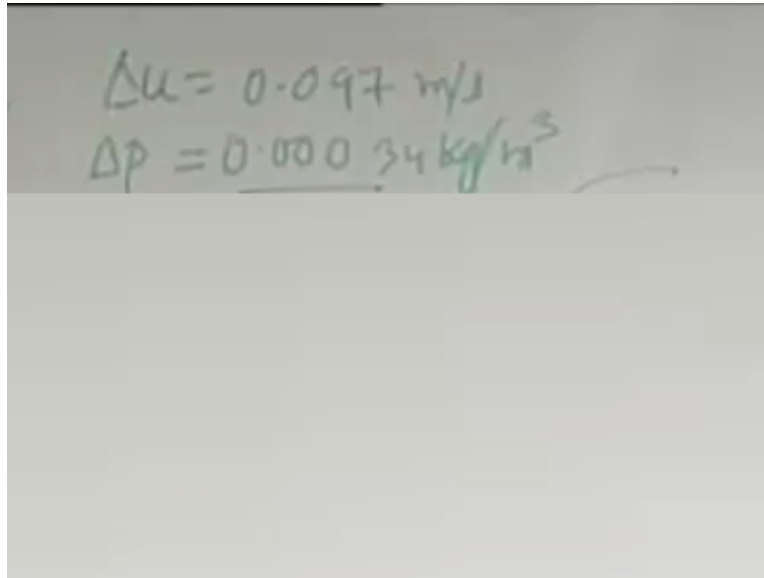 Δu = 0.097 m/s
Δρ = 0.00034 kg/m³